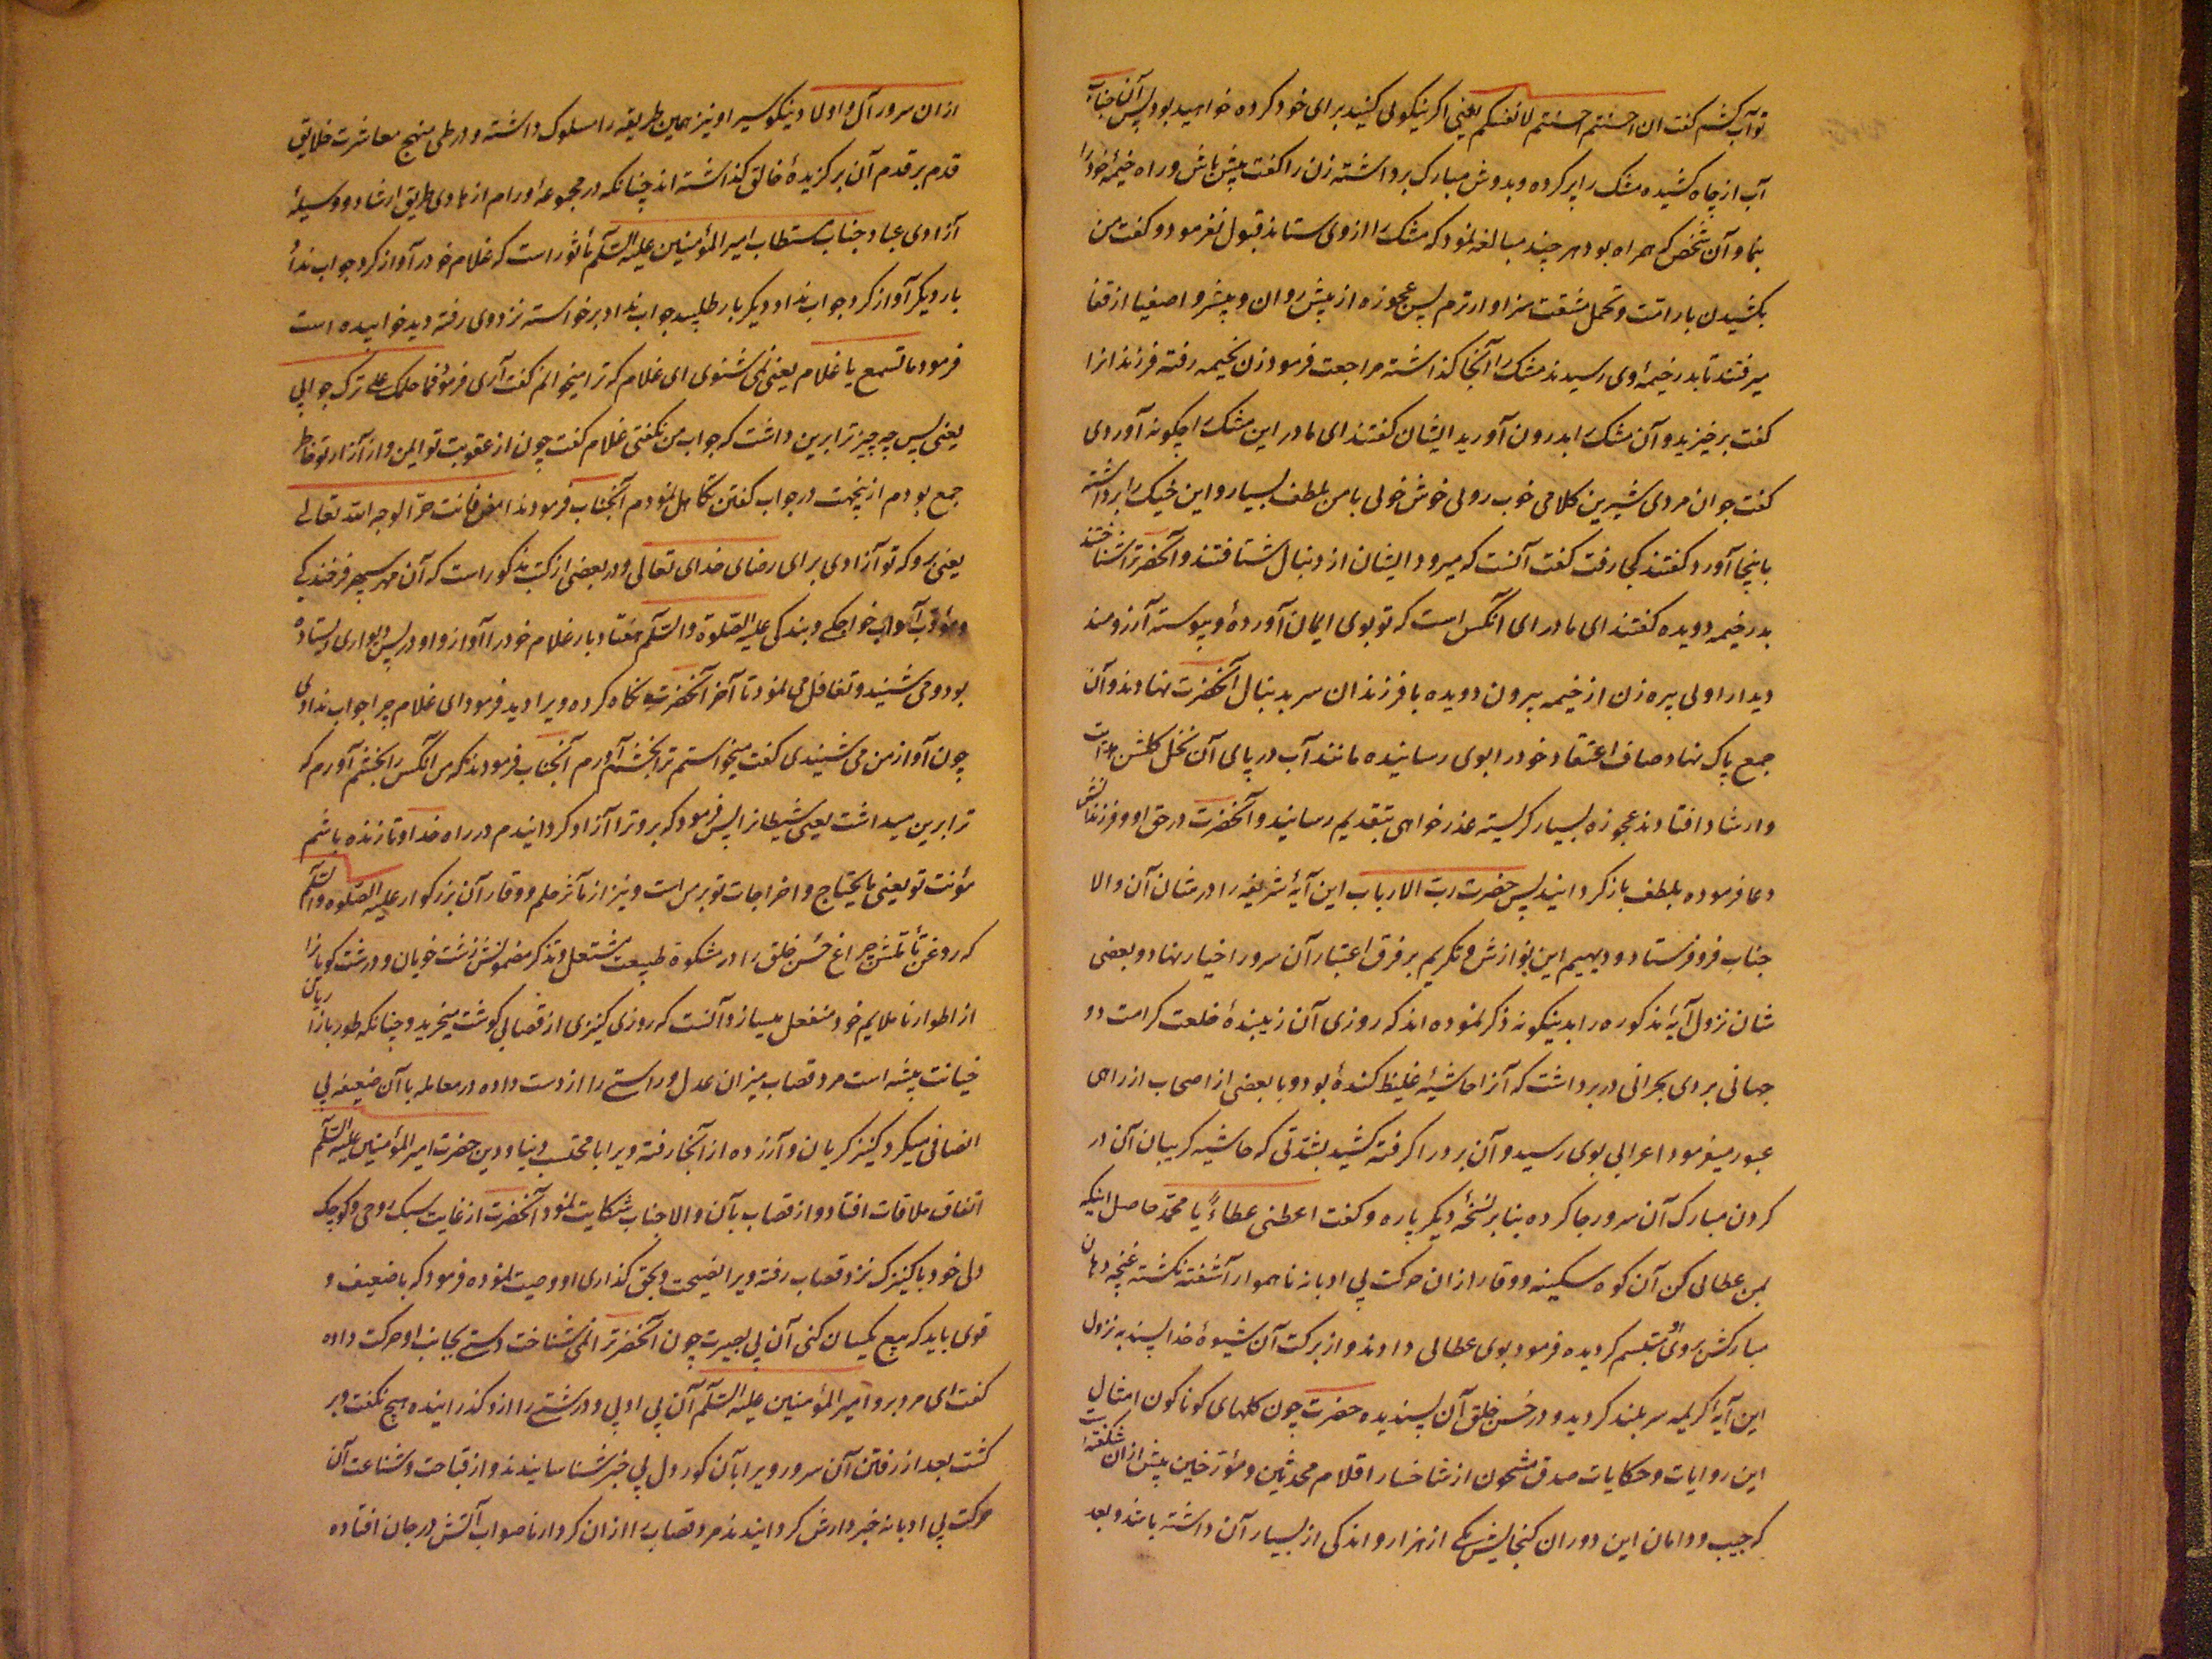 تو آب کشم گفت ان احسنتم احسنتم لانفسکم یعنی اگر نیکوئی کنید برای خود کرده خواهید بود پس آنجناب
آب از چاه کشیده مشک را پر کرده و بدوش مبارک برداشته زن را گفت پیش باش و راه خیمهٔ خود را
بنما و آن شخص که همراه بود هر چند مبالغه نمود که مشک را از وی ستاند قبول نفرمود و گفت من
بکشیدن بار امت و تحمل مشقت سزاوارترم پس عجوزه از پیش روان و پیشرو اصفیا از قفا
میرفتند تا بدر خیمهٔ وی رسیدند مشک را آنجا گذاشته مراجعت فرمود زن بخیمه رفته فرزندانرا
گفت برخیزید و آن مشک را بدرون آورید ایشان گفتند ای مادر این مشک را چگونه آوردی
گفت جوان مردی شیرین کلامی خوب روئی خوش خوئی با من بلطف بسیار و این خیک را برداشته
باینجا آورد گفتند کجا رفت گفت آنست که میرود ایشان از دنبال شتافتند و آنحضرترا شناختند
بدر خیمه دویده گفتند ای مادر ای آنکس است که تو بوی ایمان آوردهٔ و پیوسته آرزومند
دیدار اوئی پیره زن از خیمه بیرون دویده با فرزندان سر بدنبال آنحضرت نهادند و آن
جمع پاک نهاد صاف اعتقاد خود را بوی رسانیده مانند آب در پای آن نخل گلشن هدایت
و ارشاد افتادند عجوزه بسیار گریسته عذرخواهی بتقدیم رسانید و آنحضرت در حق او و فرزندانش
دعا فرموده بلطف باز گردانید پس حضرت رب الارباب این آیهٔ شریفه را در شان آن والا
جناب فرو فرستاد و دیهیم این نوازش و تکریم بر فرق اعتبار آن سرور اخیار نهاد و بعضی
شان نزول آیهٔ مذکوره را بدینگونه ذکر نموده اند که روزی آن زیبندهٔ خلعت کرامت دو
جهانی بردی بحرانی در بر داشت که آنرا حاشیهٔ غلیظ کندهٔ بود و با بعضی از اصحاب از راهی
عبور میفرمود اعرابی بوی رسید و آن برد را گرفته کشید بشدتی که حاشیه گریبان آن در
گردن مبارک آن سرور جا کرده بنا بر نسخهٔ دیگر پاره و گفت اعطنی عطاءً یا محمد حاصل اینکه
بمن عطائی کن آن کوه سکینه و وقار از ان حرکت بی ادبانه ناهموار آشفته نگشته غنچه دهان
مبارکش بروی او متبسم گردیده فرمود بوی عطائی دادند و از برکت آن شیوهٔ خدا پسند به نزول
این آیهٔ کریمه سر بلند گردید و در حسن خلق آن پسندیده حضرت چون گلهای گوناگون امثال
این روایات و حکایات صدق مشحون از شاخسار اقلام محدثین و مؤرخین بیش از ان شگفته است
که جیب و دامان این دوران گنجایش یکی از هزار و اندکی از بسیار آن داشته باشد و بعد
از ان سرور آل و اولاد نیکو سیر او نیز همین طریقه را مسلوک داشته و در طی منهج معاشرت خلایق
قدم بر قدم آن برگزیدهٔ خالق گذاشته اند چنانکه در مجموعهٔ ورام از هادی طریق ارشاد و وسیلهٔ
آزادی عباد جناب مستطاب امیر المؤمنین علیه السلام مأثور است که غلام خود را آواز کرد جواب نداد
بار دیگر آواز کرد جواب نداد دیگر بار طلبید جواب نداد برخواسته نزد وی رفته دید خوابیده است
فرمود ما تسمع یا غلام یعنی نمی شنوی ای غلام که ترا میخوانم گفت آری فرمود فما حملک علی ترک جوابی
یعنی پس چه چیز ترا برین داشت که جواب من نگفتی غلام گفت چون از عقوبت تو ایمن و از آزار تو خاطر
جمع بودم از ینجهت در جواب گفتن تکاهل نمودم آنجناب فرمودند امض فانت حر لوجه الله تعالی
یعنی برو که تو آزادی برای رضای خدای تعالی و در بعضی از کتب مذکور است که آن مهر سپهر فرخندگی
و مؤدب آداب خواجگی و بندگی علیه الصلوة والسلام هفتاد بار غلام خود را آواز و او در پس دیواری ایستاده
بود و می شنید و تغافل می نمود تا آخر آنحضرت نگاه کرده ویرا دید فرمود ای غلام چرا جواب ندادی
چون آواز من می شنیدی گفت میخواستم ترا بخشم آورم آنجناب فرمودند که من آنکس را بخشم آورم که
ترا برین میداشت یعنی شیطانرا پس فرمود که برو ترا آزاد گردانیدم در راه خدا و تا زنده باشم
مؤنت تو یعنی مایحتاج و اخراجات تو بر من است و نیز از مآثر حلم و وقار آن بزرگوار علیه الصلوة والسلام
که روغن تأملش چراغ حسن خلق را در مشکوة طبیعت مشتعل و تذکر مضمونش زشت خویان و درشت گویانرا
از اطوار ناملایم خود منفعل میسازد آنست که روزی کنیزی از قصابی گوشت میخرید و چنانکه طور بازاریان
خیانت پیشه است مرد قصاب میزان عدل و راستی را از دست داده در معامله با آن ضعیفه بی
انصافی میکرد کنیز گریان و آزرده از آنجا رفته ویرا با محتسب دنیا و دین حضرت امیر المؤمنین علیه السلام
اتفاق ملاقات افتاد و از قصاب بآن والا جناب شکایت نمود آنحضرت از غایت سبک روحی و کوچک
دلی خود با کنیزک نزد قصاب رفته ویرا نصیحت و بحق گذاری او وصیت نموده فرمود که با ضعیف و
قوی باید که بیع یکسان کنی آن بی بصیرت چون آنحضرترا نمی شناخت دستی بجانب او حرکت داده
گفت ای مرد برو امیر المؤمنین علیه السلام آن بی ادبی و درشتی را از و گذرانیده هیچ نگفت و بر
گشت بعد از رفتن آن سرور ویرا بآن کور دل بی خبر شناسانیدند و از قباحت و شناعت آن
حرکت بی ادبانه خبردارش گردانیدند مرد قصاب را از ان کردار ناصواب آتش در جان افتاده